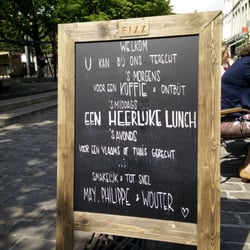 FIZZ
WELKOM
U KAN BIJ ONS TERECHT
'S MORGENS
VOOR EEN KOFFIE & ONTBIJT
'S MIDDAGS
EEN HEERLIJKE LUNCH
'S AVONDS
VOOR EEN VLAAMS OF THAIS GERECHT
...
SMAKELIJK & TOT SNEL
MAY, PHILIPPE & WOUTER